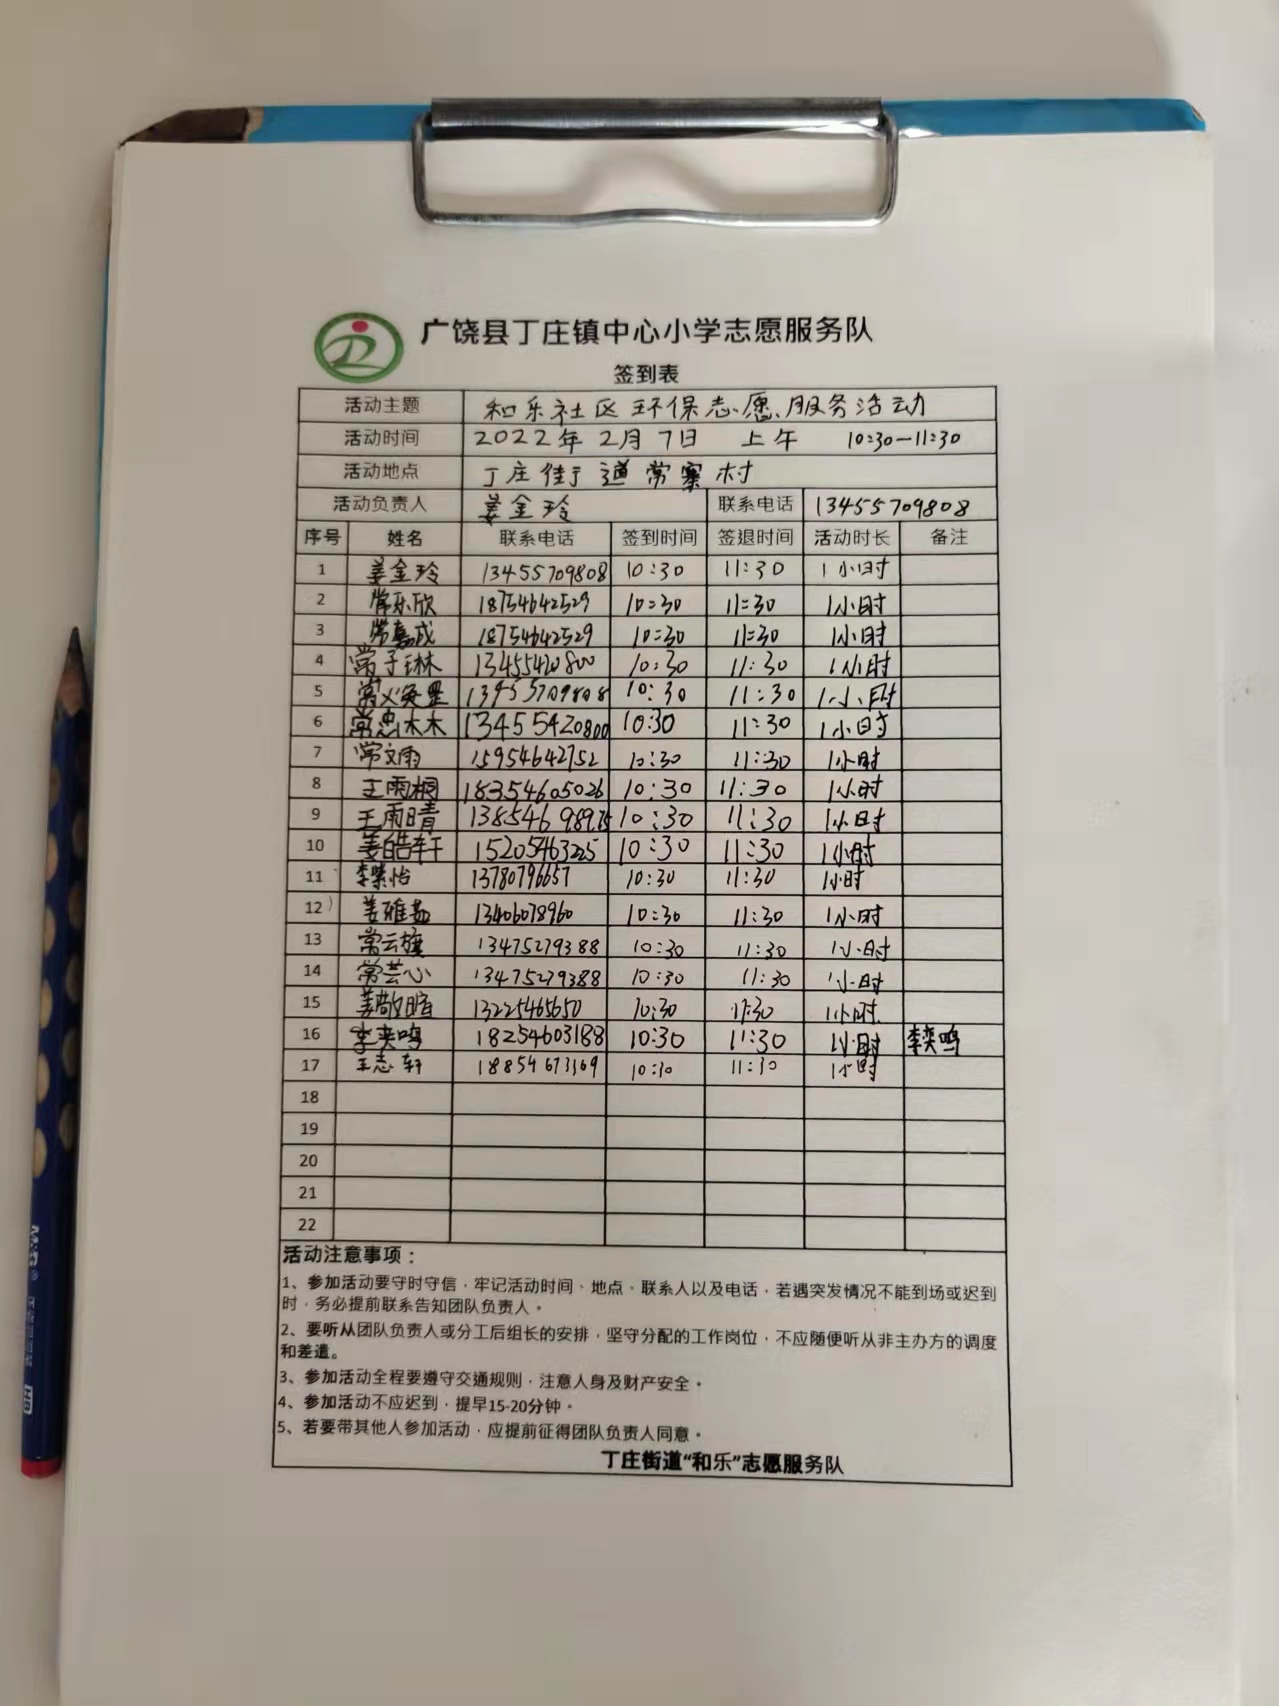 广饶县丁庄镇中心小学志愿服务队
签到表
活动主题 和乐社区环保志愿服务活动
活动时间 2022年2月7日 上午 10:30—11:30
活动地点 丁庄街道常寨村
活动负责人 姜金玲 联系电话 13455709808
序号 姓名 联系电话 签到时间 签退时间 活动时长 备注
1 姜金玲 13455709808 10:30 11:30 1小时
2 常乐欣 18754642529 10:30 11:30 1小时
3 常嘉成 18754642529 10:30 11:30 1小时
4 常子琳 13455420800 10:30 11:30 1小时
5 10:30 11:30 1小时
6 常忠林 13455420800 10:30 11:30 1小时
7 常文雨 15954642752 10:30 11:30 1小时
8 王雨桐 18354605026 10:30 11:30 1小时
9 王雨晴 10:30 11:30 1小时
10 姜皓轩 15205463225 10:30 11:30 1小时
11 李紫怡 13780796657 10:30 11:30 1小时
12 姜雅茹 13406078960 10:30 11:30 1小时
13 13475279388 10:30 11:30 1小时
14 常芸心 13475279388 10:30 11:30 1小时
15 13225465650 10:30 11:30 1小时
16 李奕鸣 18254603188 10:30 11:30 1小时 李奕鸣
17 王志轩 18854673169 10:30 11:30 1小时
18
19
20
21
22
活动注意事项：
1、参加活动要守时守信，牢记活动时间、地点、联系人以及电话，若遇突发情况不能到场或迟到
时，务必提前联系告知团队负责人。
2、要听从团队负责人或分工后组长的安排，坚守分配的工作岗位，不应随便听从非主办方的调度
和差遣。
3、参加活动全程要遵守交通规则，注意人身及财产安全。
4、参加活动不应迟到，提早15-20分钟。
5、若要带其他人参加活动，应提前征得团队负责人同意。
丁庄街道“和乐”志愿服务队
M&G
HB